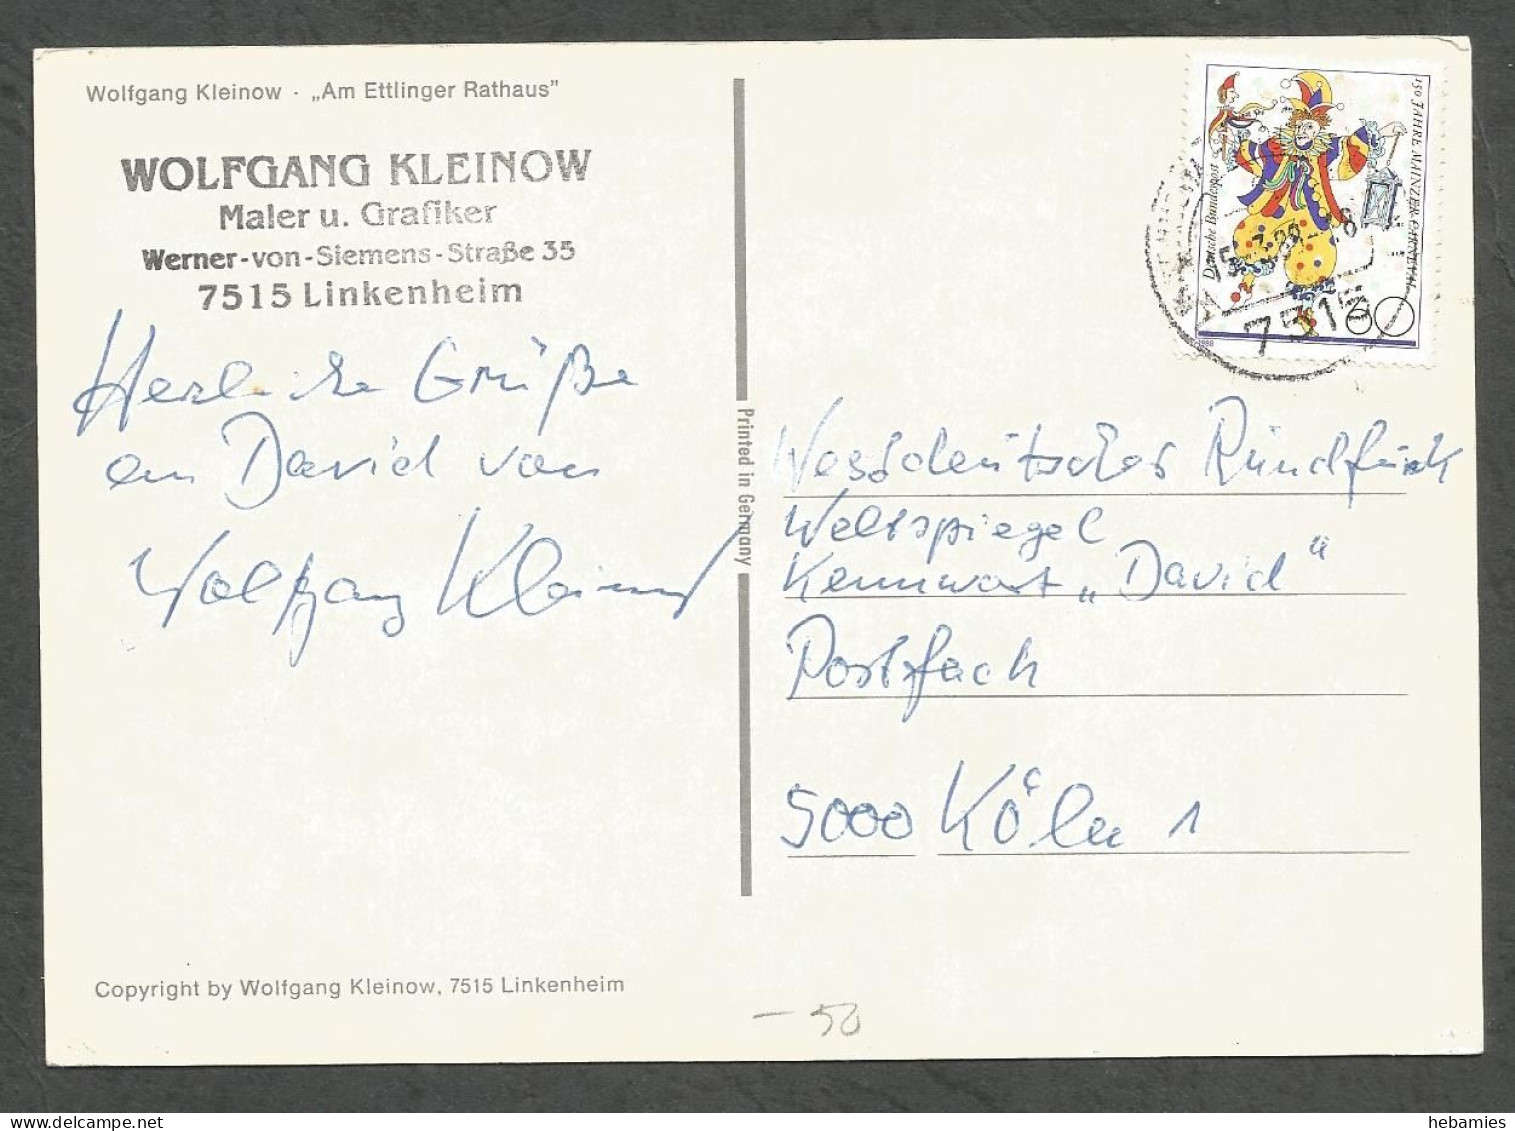 Wolfgang Kleinow · „Am Ettlinger Rathaus”
WOLFGANG KLEINOW
Maler u. Grafiker
Werner-von-Siemens-Straße 35
7515 Linkenheim
Herzliche Grüße
an David von
Wolfgang Kleinow
Copyright by Wolfgang Kleinow, 7515 Linkenheim
Printed in Germany
150 JAHRE MAINZER CARNEVAL
Deutsche Bundespost
60
1988
7515
Westdeutscher Rundfunk
Weltspiegel
Kennwort „David“
Postfach
5000 Köln 1
- 50
hebamies